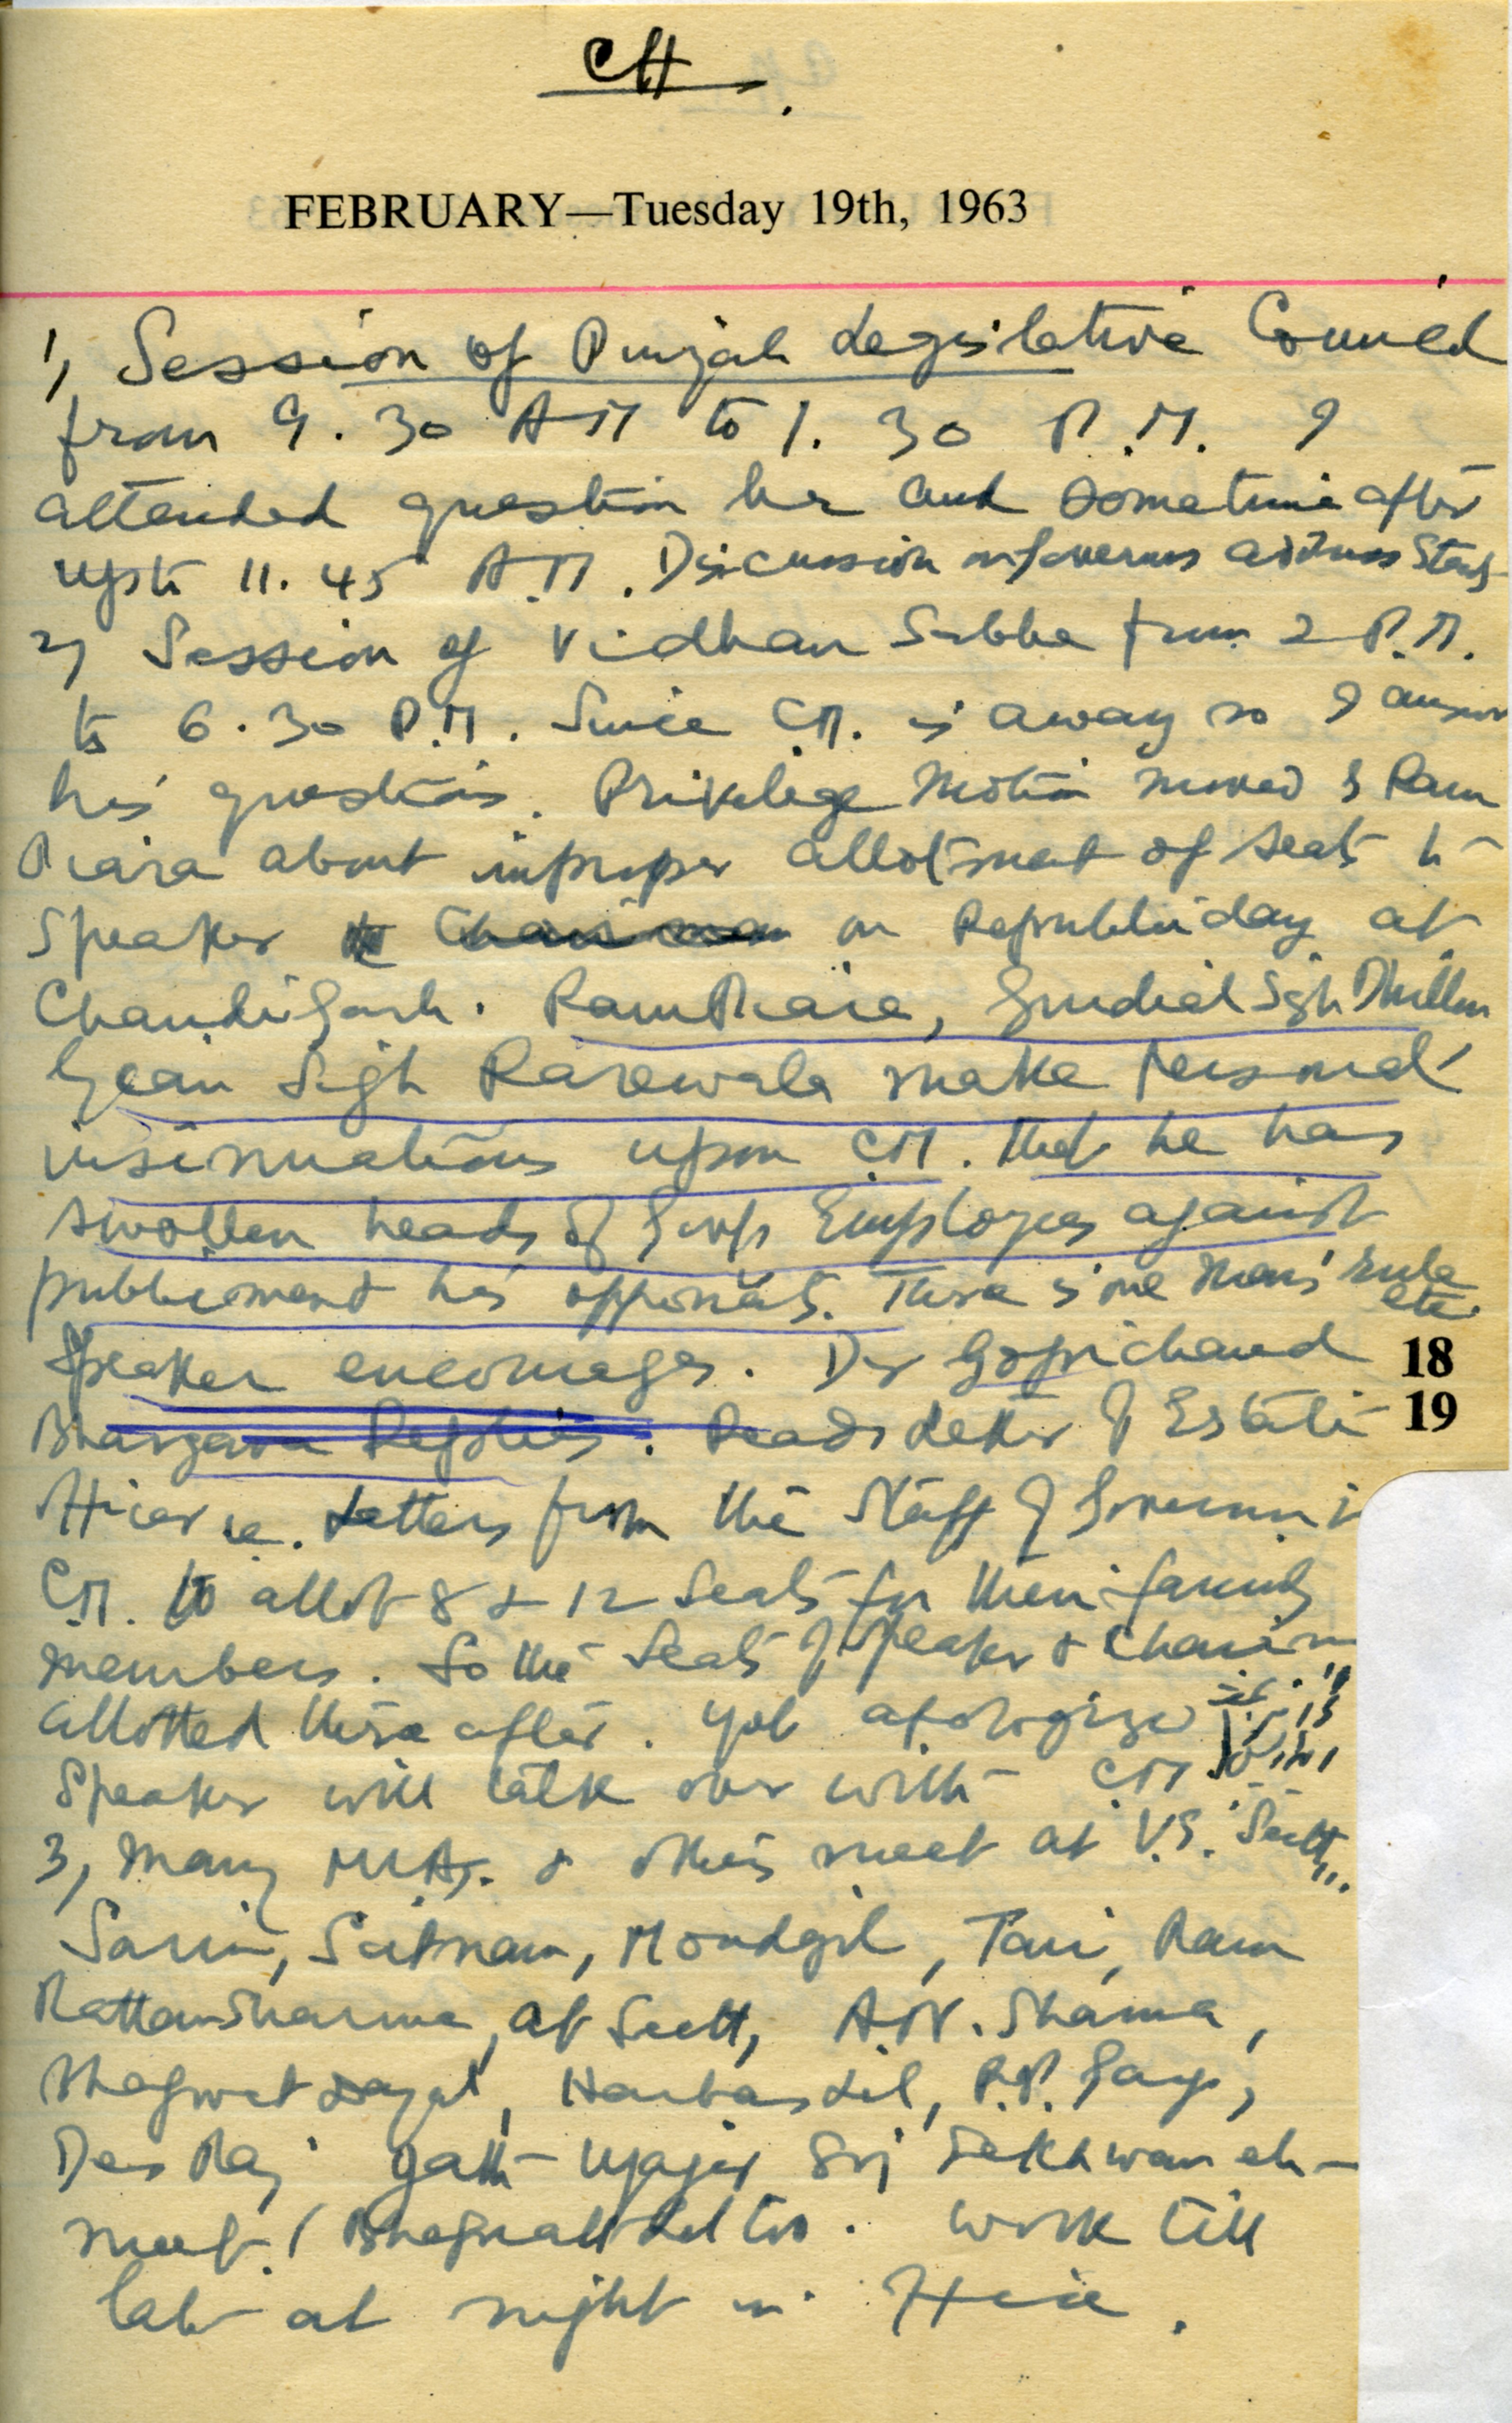 CH.
FEBRUARY—Tuesday 19th, 1963
1, Session of Punjab Legislative Council
from 9.30 AM to 1.30 P.M. I
attended question hr and sometime after
upto 11.45 A.M. Discussion on Governors address
2, Session of Vidhan Sabha from 2 P.M.
to 6.30 P.M. Since C.M. is away so I
his questions. Privilege Motion moved by Ram
Piara about improper allotment of seats to
Speaker Chairman on Republic day at
Chandigarh. Ram Piara, Gurdial Sigh Dhillon
Gean Sigh Rarewala make personal
insinuations upon C.M. that he has
swollen heads of Govt Employees against
his opponents. There is one Man's rule etc.
Speaker encourages. Dr Gopichand 18
Bhargava Replies. Reads Letter of Estate 19
officer i.e. Letters from the Staff of Governor &
C.M. to allot 8 & 12 Seats for their family
members. So the Seats of Speaker &
allotted there after. apologise
Speaker will talk over with CM
3, Many MLAs. & others meet at V.S. Sectt,
Sarin, Satnam, Moudgil, Tari, Ram
Rattan Sharma, at Sectt, A.N. Sharma,
Bhagwat Dayal, Harbans Lal, Garg,
Des Raj Ujagar Sigh Sekhwan
meet. Bhagirath Lal too. Work till
late at night in office.